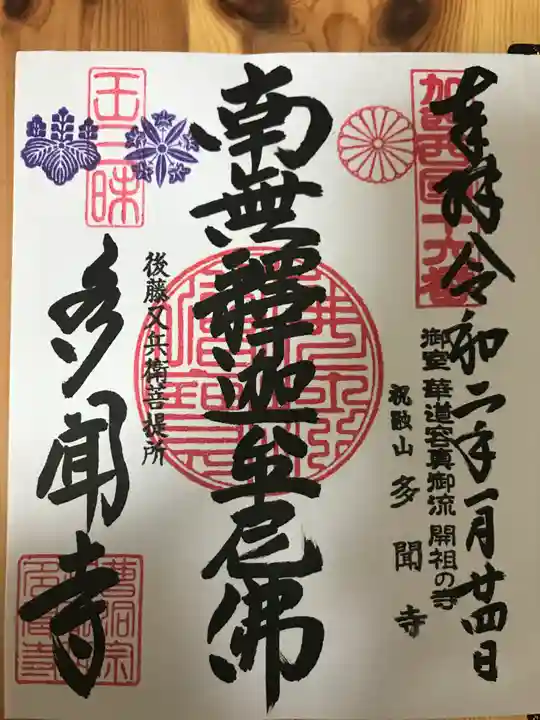 奉拝 令和二年一月廿四日
加西西国十六番
御室 華道容真御流 開祖の寺
祝融山 多聞寺
南無釋迦牟尼佛
後藤又兵衛菩提所
王三昧
多聞寺